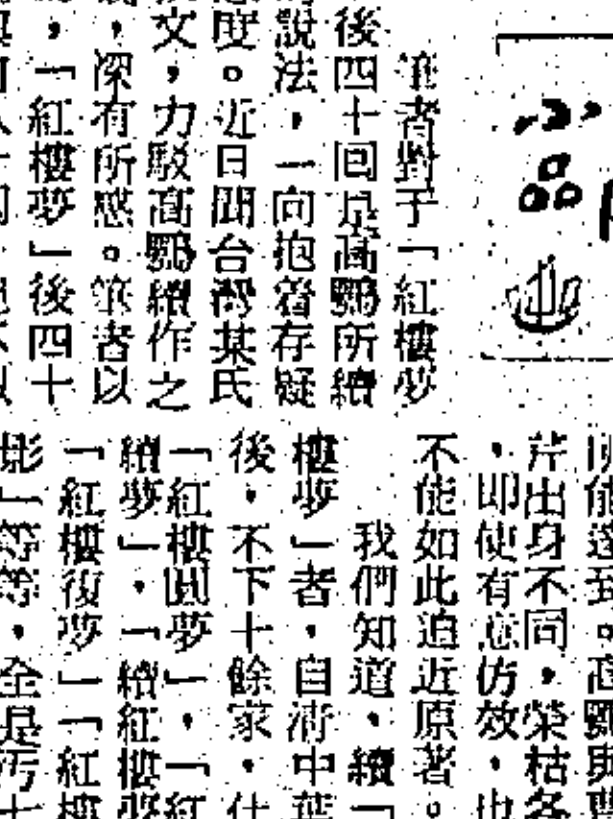 小品
筆者對于「紅樓夢
後四十回是高鶚所續
說法，一向抱着存疑
度。近日閱台灣某氏
文，力駁高鶚續作之
，深有所感。筆者以
，「紅樓夢」後四十
能達到。高鶚與
芹出身不同，榮枯各
，即使有意仿效，也
不能如此迫近原著。
我們知道，續「
樓夢」者，自清中葉
後，不下十餘家，什
「紅樓圓夢」，「紅
續夢」，「續紅樓夢
「紅樓復夢」「紅樓
影」等等，全是污